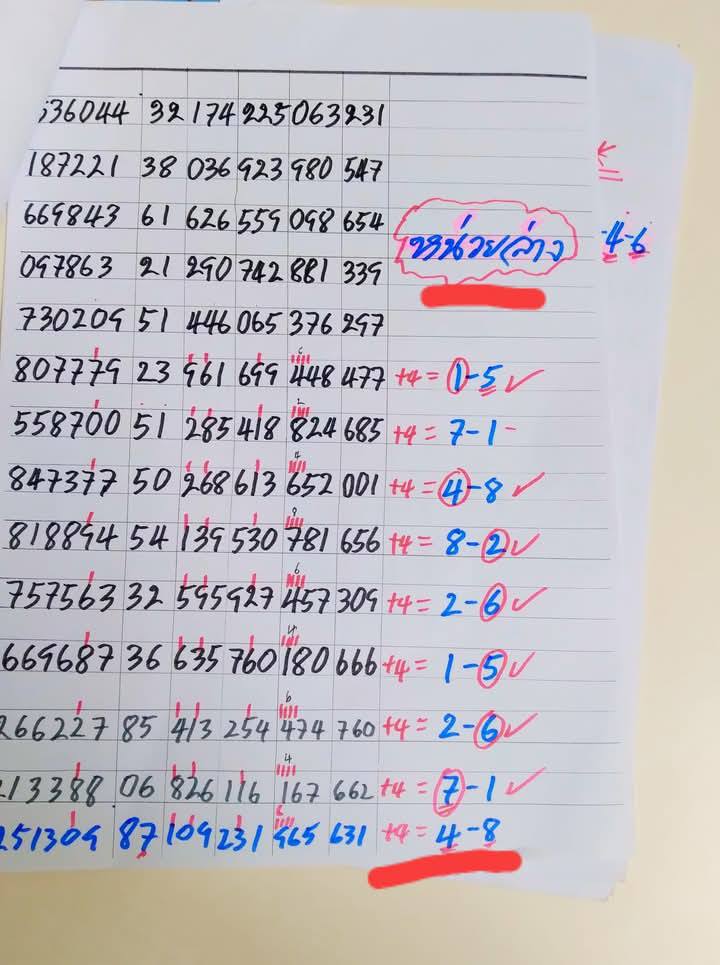 36044 32 174 225 063 231
187221 38 036 923 980 547
669843 61 626 559 098 654
หน่วยล่าง
-4-6
097863 21 290 742 881 339
730209 51 446 065 376 297
807779 23 961 699 448 477 +4 = 1-5 ✓
2
558700 51 285 418 824 685 +4 = 7-1 -
4
847377 50 268 613 652 001 +4 = 4-8 ✓
9
818894 54 139 530 781 656 +4 = 8-2 ✓
6
757563 32 595 927 457 309 +4 = 2-6 ✓
4
669687 36 635 760 180 666 +4 = 1-5 ✓
6
266227 85 413 254 474 760 +4 = 2-6 ✓
4
213388 06 826 116 167 662 +4 = 7-1 ✓
6
251309 87 109 231 965 631 +4 = 4-8